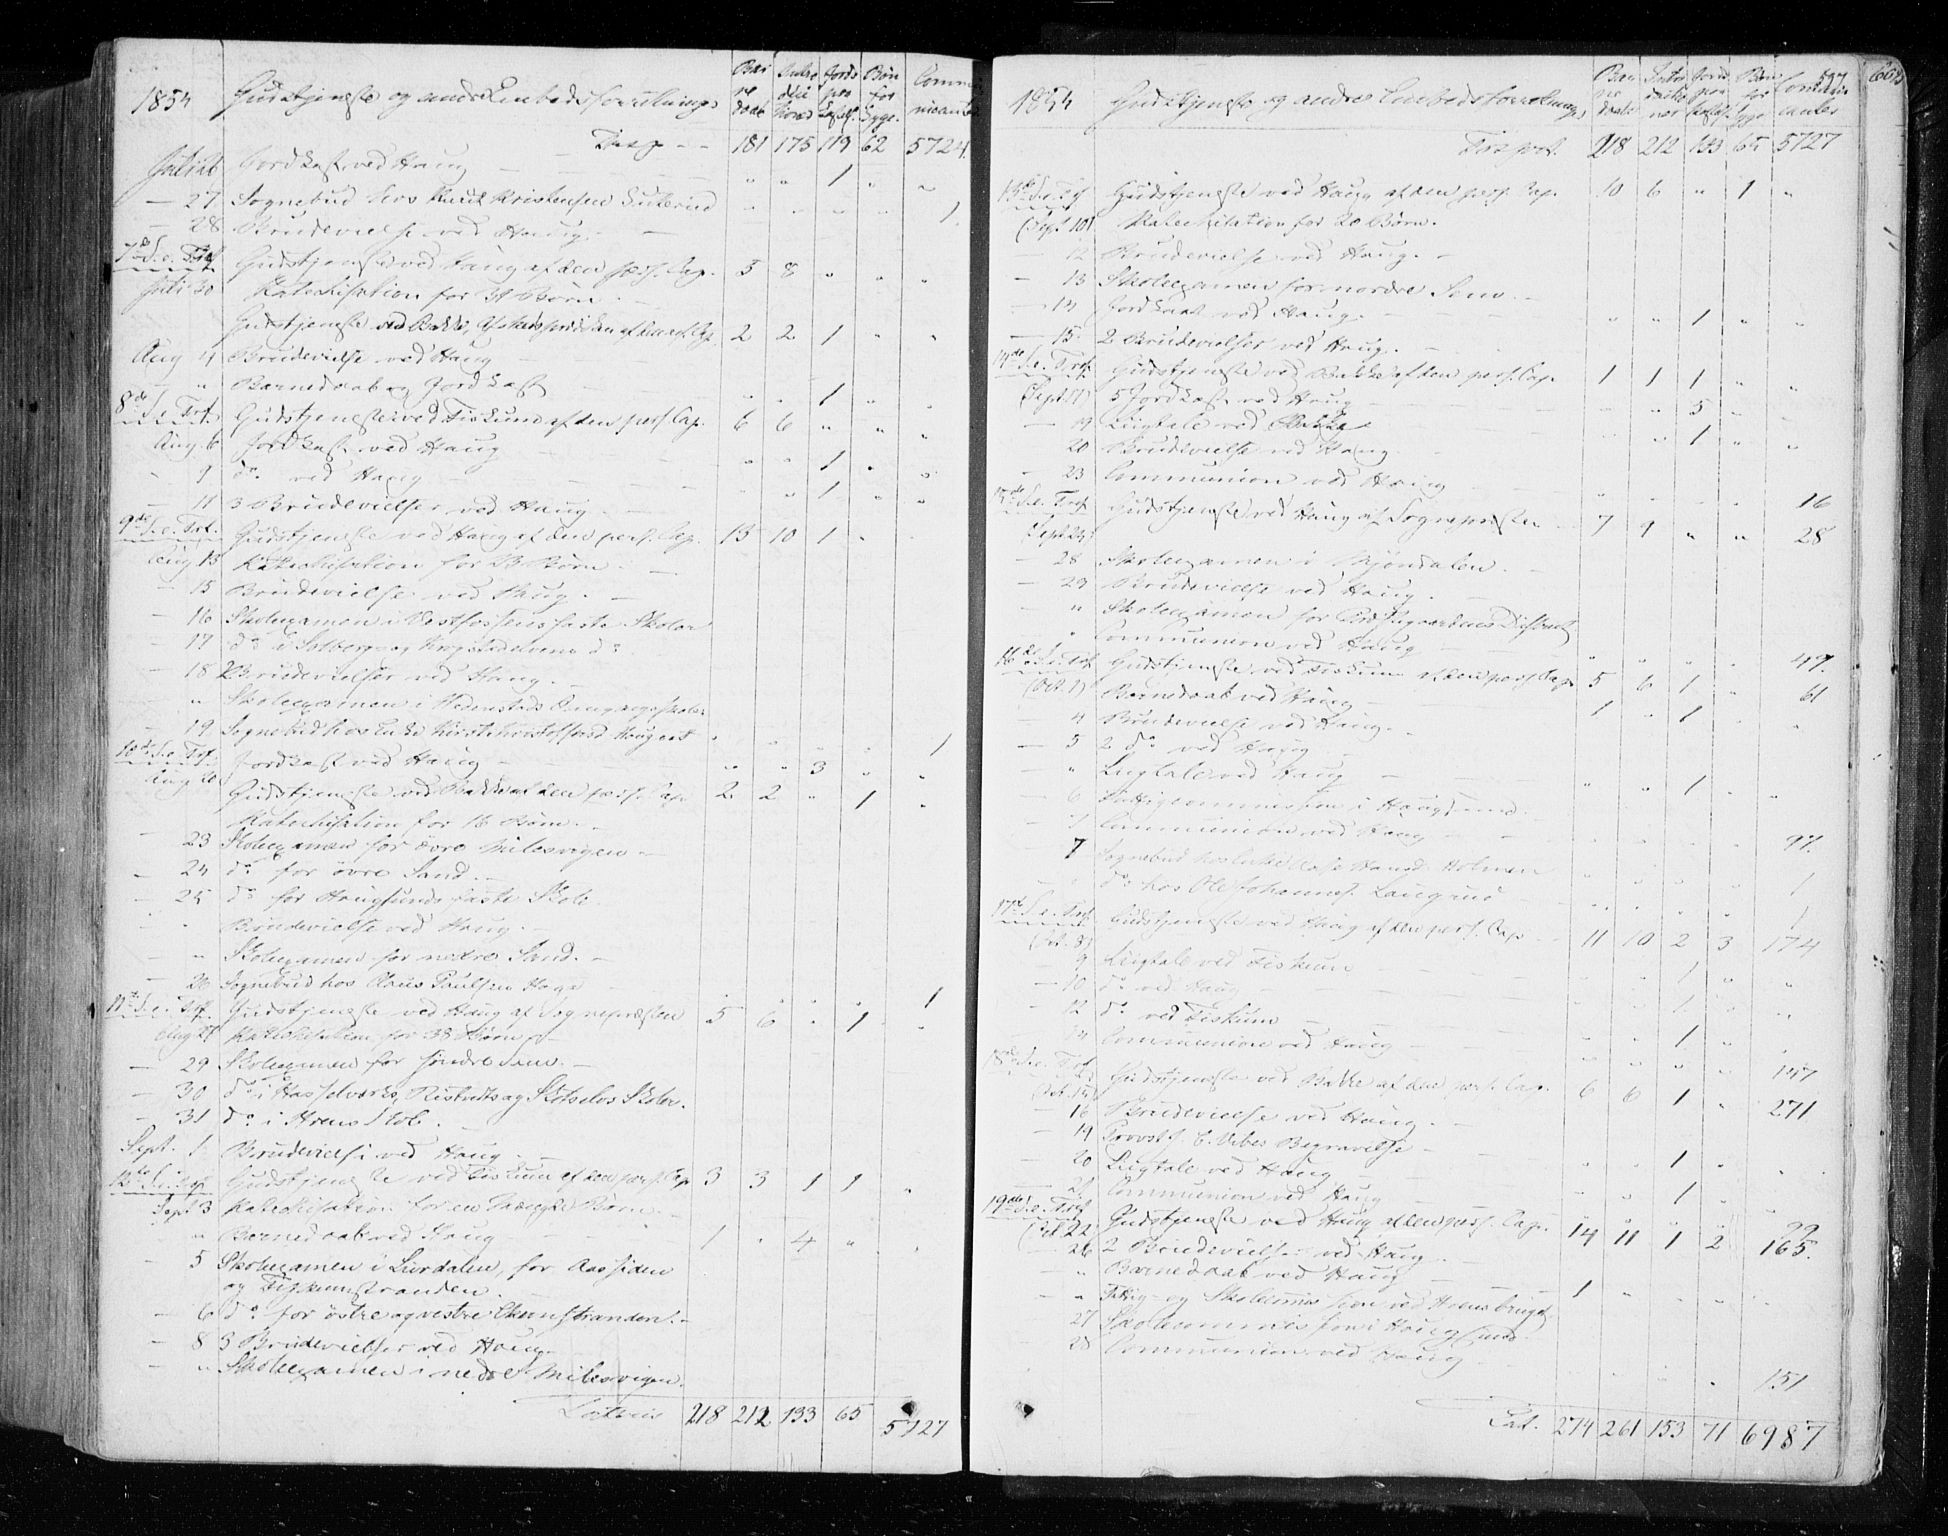 1854 Gudstjeneste og andre Embedsforretninger Barnedaab Introduktioner Jordspaakastelse Bøn for Syge Communicanter
Transp. - - 181 175 119 62 5724
Juli 26 Jordkast ved Haug " " 1 " "
— 27 Sognebud hos Knut Kristensen " " " " 1
— 28 Brudevielse ved Haug. —
7de S. e. Tref. Gudstjeneste ved Haug af den pers. Cap. 5 8 " " "
Juli 30 Katechisation for 31 Børn.
Gudstjeneste ved Bakke, af den pers. Cap. 2 2 1 " "
Aug 4 Brudevielse ved Haug
— " Barnedaab og Jordkast " " 1 " "
8de S. e. Tref. Gudstjeneste ved Fiskum af den pers. Cap. 6 6 " " "
Aug 6 Jordkast ved Haug " " 1 " "
- 9 do ved Haug " " 1 " "
- 11 3 Brudevielser ved Haug. —
9de S. e. Tref. Gudstjeneste ved Haug af den pers. Cap. 15 10 1 "
Aug 13 Katechisation for 13 Børn. —
- 15 Brudevielse ved Haug. —
- 16 Skoleexamen i Vestfossens faste Skoler
- 17 do i Solberg- og Krogstadelvens do
- 18 2 Brudevielser ved Haug. —
" Skoleexamen i Hedenstads Omgangsskoler
- 19 Sognebud hos Enke " " " " 1
10de S. e. Tref. Jordkast ved Haug " " 3 " "
Aug 20 Gudstjeneste ved Bakke af den pers. Cap. 2 2 " 1 "
Katechisation for 16 Børn.
- 23 Skoleexamen for øvre Milesvigen —
- 24 do for øvre Sand. —
- 25 do for Haugsunds faste Skole
" Brudevielse ved Haug. —
- " Skoleexamen for nedre Sand. —
- 26 Sognebud hos Claus Paulsen Haga " " " " 1
11te S. e. Tref. Gudstjeneste ved Haug af Sognepræsten 5 6 " 1 "
Aug 27 Katechisation for 38 Børn
- 29 Skoleexamen for søndre Sem. —
- 30 do i Hasselværks, Ristvedts og Skotselvs Skoler.
- 31 do i Hrens Skole.
Sept. 1 Brudevielse ved Haug. —
12te S. e. Tref. Gudstjeneste ved Fiskum af den pers. Cap. 3 3 1 1 "
Sept 3 Katechisation for en Mængde Børn. —
" Barnedaab ved Haug 1 " 4 " "
- 5 Skoleexamen i Lurdalen, for Aassiden
og Fiskumstranden.
- 6 do for østre og vestre Ekernstranden. —
- 8 3 Brudevielser ved Haug. —
- " Skoleexamen i nedre Milesvigen.
Latus 218 212 133 65 5727
597 602
1854 Gudstjeneste og andre Embedsforretninger Barnedaab Introduktioner Jordspaakast. Bøn for Syge Communicantes
Transport. 218 212 133 65 5727
13de S. e. Tref. Gudstjeneste ved Haug af den pers. Cap. 10 6 " 1 "
(Sept 10) Katechisation for 20 Børn.
— 12 Brudevielse ved Haug. —
— 13 Skoleexamen for nordre Sem. —
— 14 Jordkast ved Haug. — " " 1 " "
— 15. 2 Brudevielser ved Haug. —
14de S. e. Tref. Gudstjeneste ved Bakke af den pers. Cap. 1 1 1 " "
(Sept 17) 5 Jordkast ved Haug " " 5 "
- 19 Liigtale ved Bakke " " 1 " "
20 Brudevielse ved Haug.
- 23 Communion ved Haug " " " " 16
15de S. e. Tref. Gudstjeneste ved Haug af Sognepræsten 7 9 " " 28
(Sept 24)
- 28 Skoleexamen i Mjøndalen. —
- 29 Brudevielse ved Haug. —
" Skoleexamen for District
" Communion ved Haug " " " " 47.
16de S. e. Tref. Gudstjeneste ved Fiskum af den pers. Cap. 5 6 1 " 61
(Oct. 1) Barnedaab ved Haug 1 " 1 " "
— 4 Brudevielse ved Haug.
— 5 2 do ved Haug
— " Liigtale ved Haug " " 1 " "
- 6 Fattigcommission i Haugsund.
- 7 Communion ved Haug " " " " 97.
7 Sognebud hos Enke Holmen " " " " 1
" do hos Ole Johannes. Laugrud " " " " 1
17de S. e. Tref. Gudstjeneste ved Haug af den pers. Cap. 11 10 2 3 174
(Oct. 8)
9 Liigtale ved Fiskum " " 1 "
- 10 do ved Haug " " 1 "
- 12 do ved Fiskum " " 1 "
14 Communion ved Haug " " " " 147
18de S. e. Tref. Gudstjeneste ved Bakke af den pers. Cap. 6 6 1 " 271
(Oct. 15)
- 16 Brudevielse ved Haug. —
- 19 Provst Begravelse " " 1 "
- 20 Liigtale ved Haug " " 1 "
- 21 Communion ved Haug " " " " 22
19de S. e. Tref. Gudstjeneste ved Haug af den pers. Cap. 14 11 1 2 165.
(Oct 22)
- 26 2 Brudevielser ved Haug. —
" Barnedaab ved Haug 1 " " " "
- " Fattig- og Skolecommission ved Hrensbruget
27 Skolecommission i Haugsund.
- 28 Communion ved Haug " " " " 151
Lat. 274 261 153 71 6987